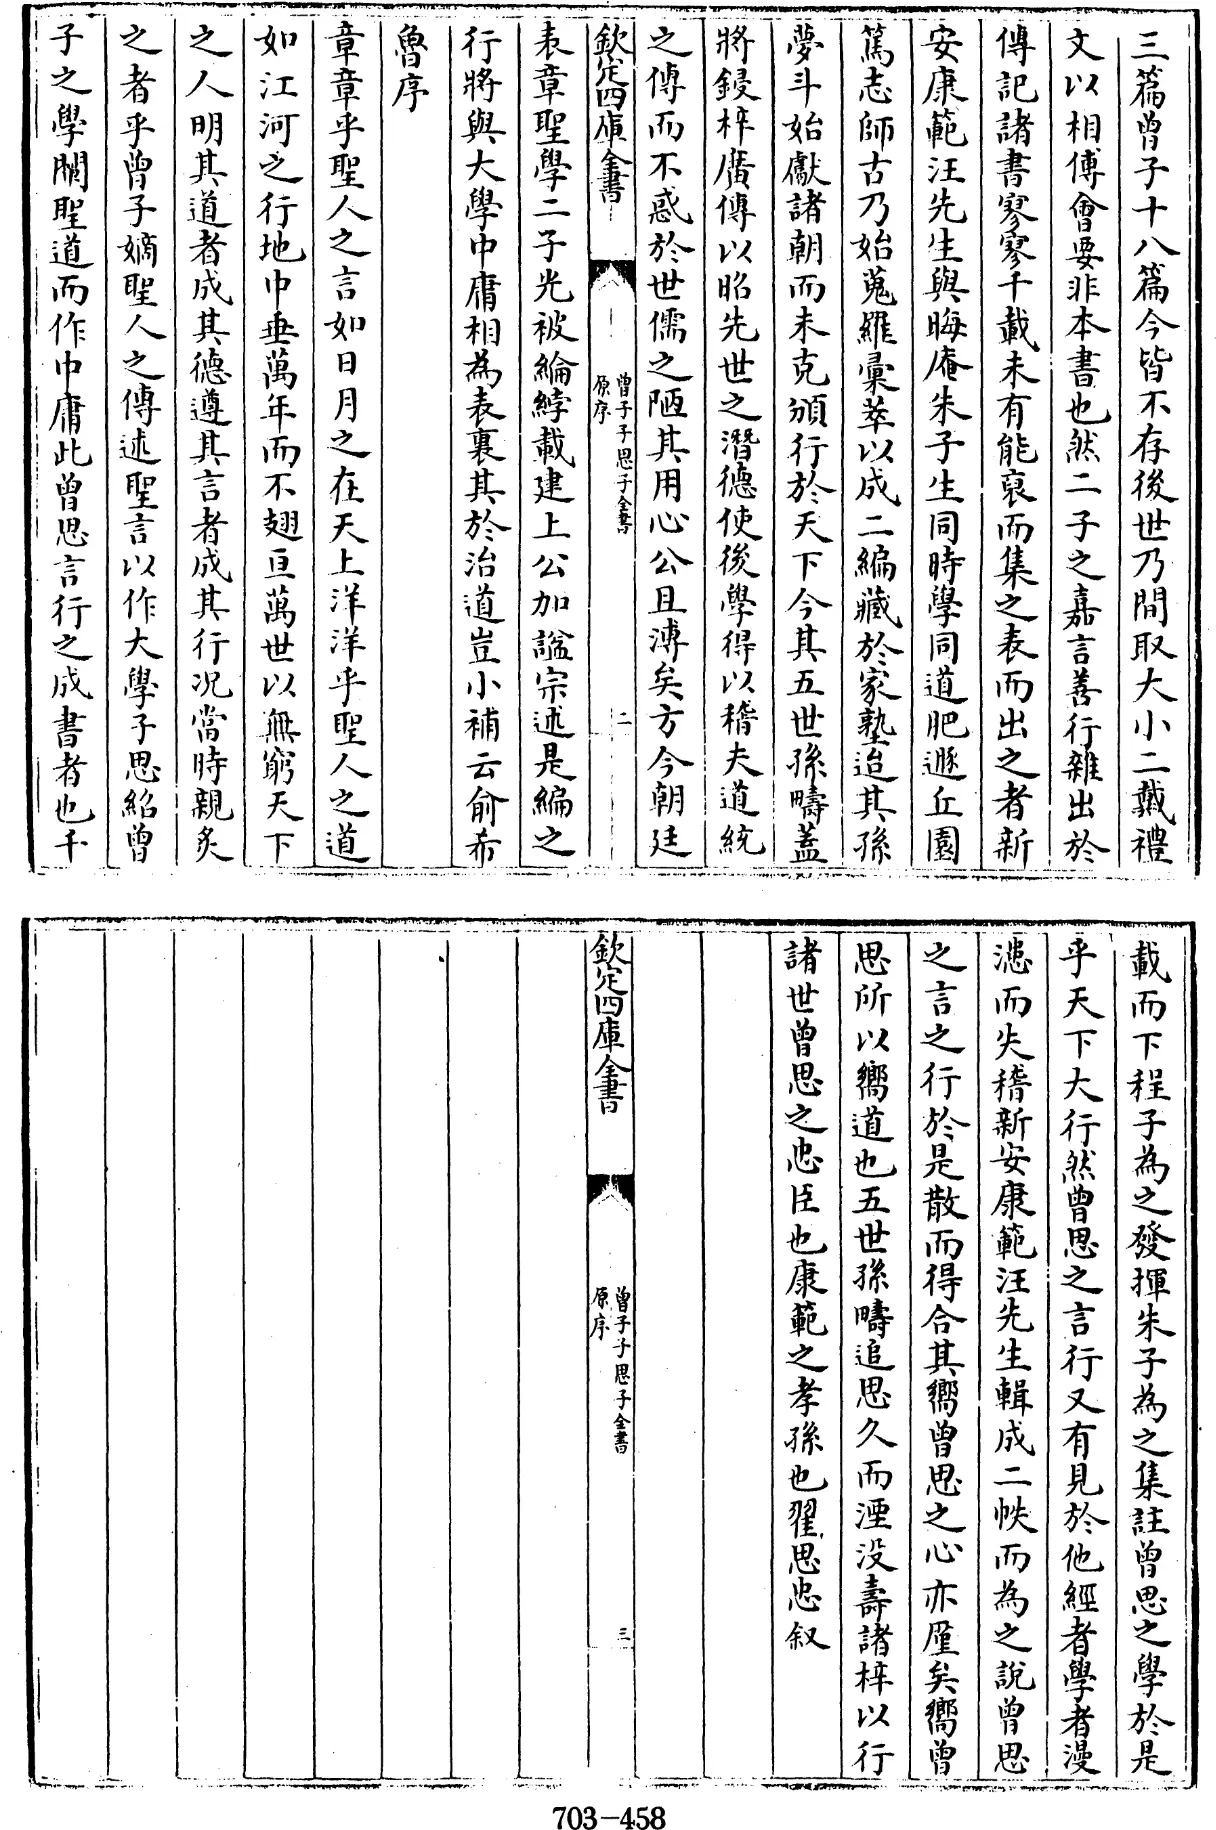 三篇曾子十八篇今皆不存後世乃間取大小二戴禮
文以相傅會要非本書也然二子之嘉言善行雜出於
傳記諸書寥寥千載未有能裒而集之表而出之者新
安康範汪先生與晦庵朱子生同時學同道肥遯丘園
篤志師古乃始蒐羅彙萃以成二編藏於家塾迨其孫
夢斗始獻諸朝而未克頒行於天下今其五世孫疇蓋
將鋟梓廣傳以昭先世之潛德使後學得以稽夫道統
之傳而不惑於世儒之陋其用心公且溥矣方今朝廷
欽定四庫全書
曾子子思子全書
原序
二
表章聖學二子光被綸綍載建上公加諡宗述是編之
行將與大學中庸相為表裏其於治道豈小補云俞希
魯序
章章乎聖人之言如日月之在天上洋洋乎聖人之道
如江河之行地中垂萬年而不翅亘萬世以無窮天下
之人明其道者成其德遵其言者成其行況當時親炙
之者乎曾子嫡聖人之傳述聖言以作大學子思紹曾
子之學關聖道而作中庸此曾思言行之成書者也千
載而下程子為之發揮朱子為之集註曾思之學於是
乎天下大行然曾思之言行又有見於他經者學者漫
漶而失稽新安康範汪先生輯成二帙而為之說曾思
之言之行於是散而得合其嚮曾思之心亦厪矣嚮曾
思所以嚮道也五世孫疇追思久而湮没壽諸梓以行
諸世曾思之忠臣也康範之孝孫也翟思忠叙
欽定四庫全書
曾子子思子全書
原序
三
703-458